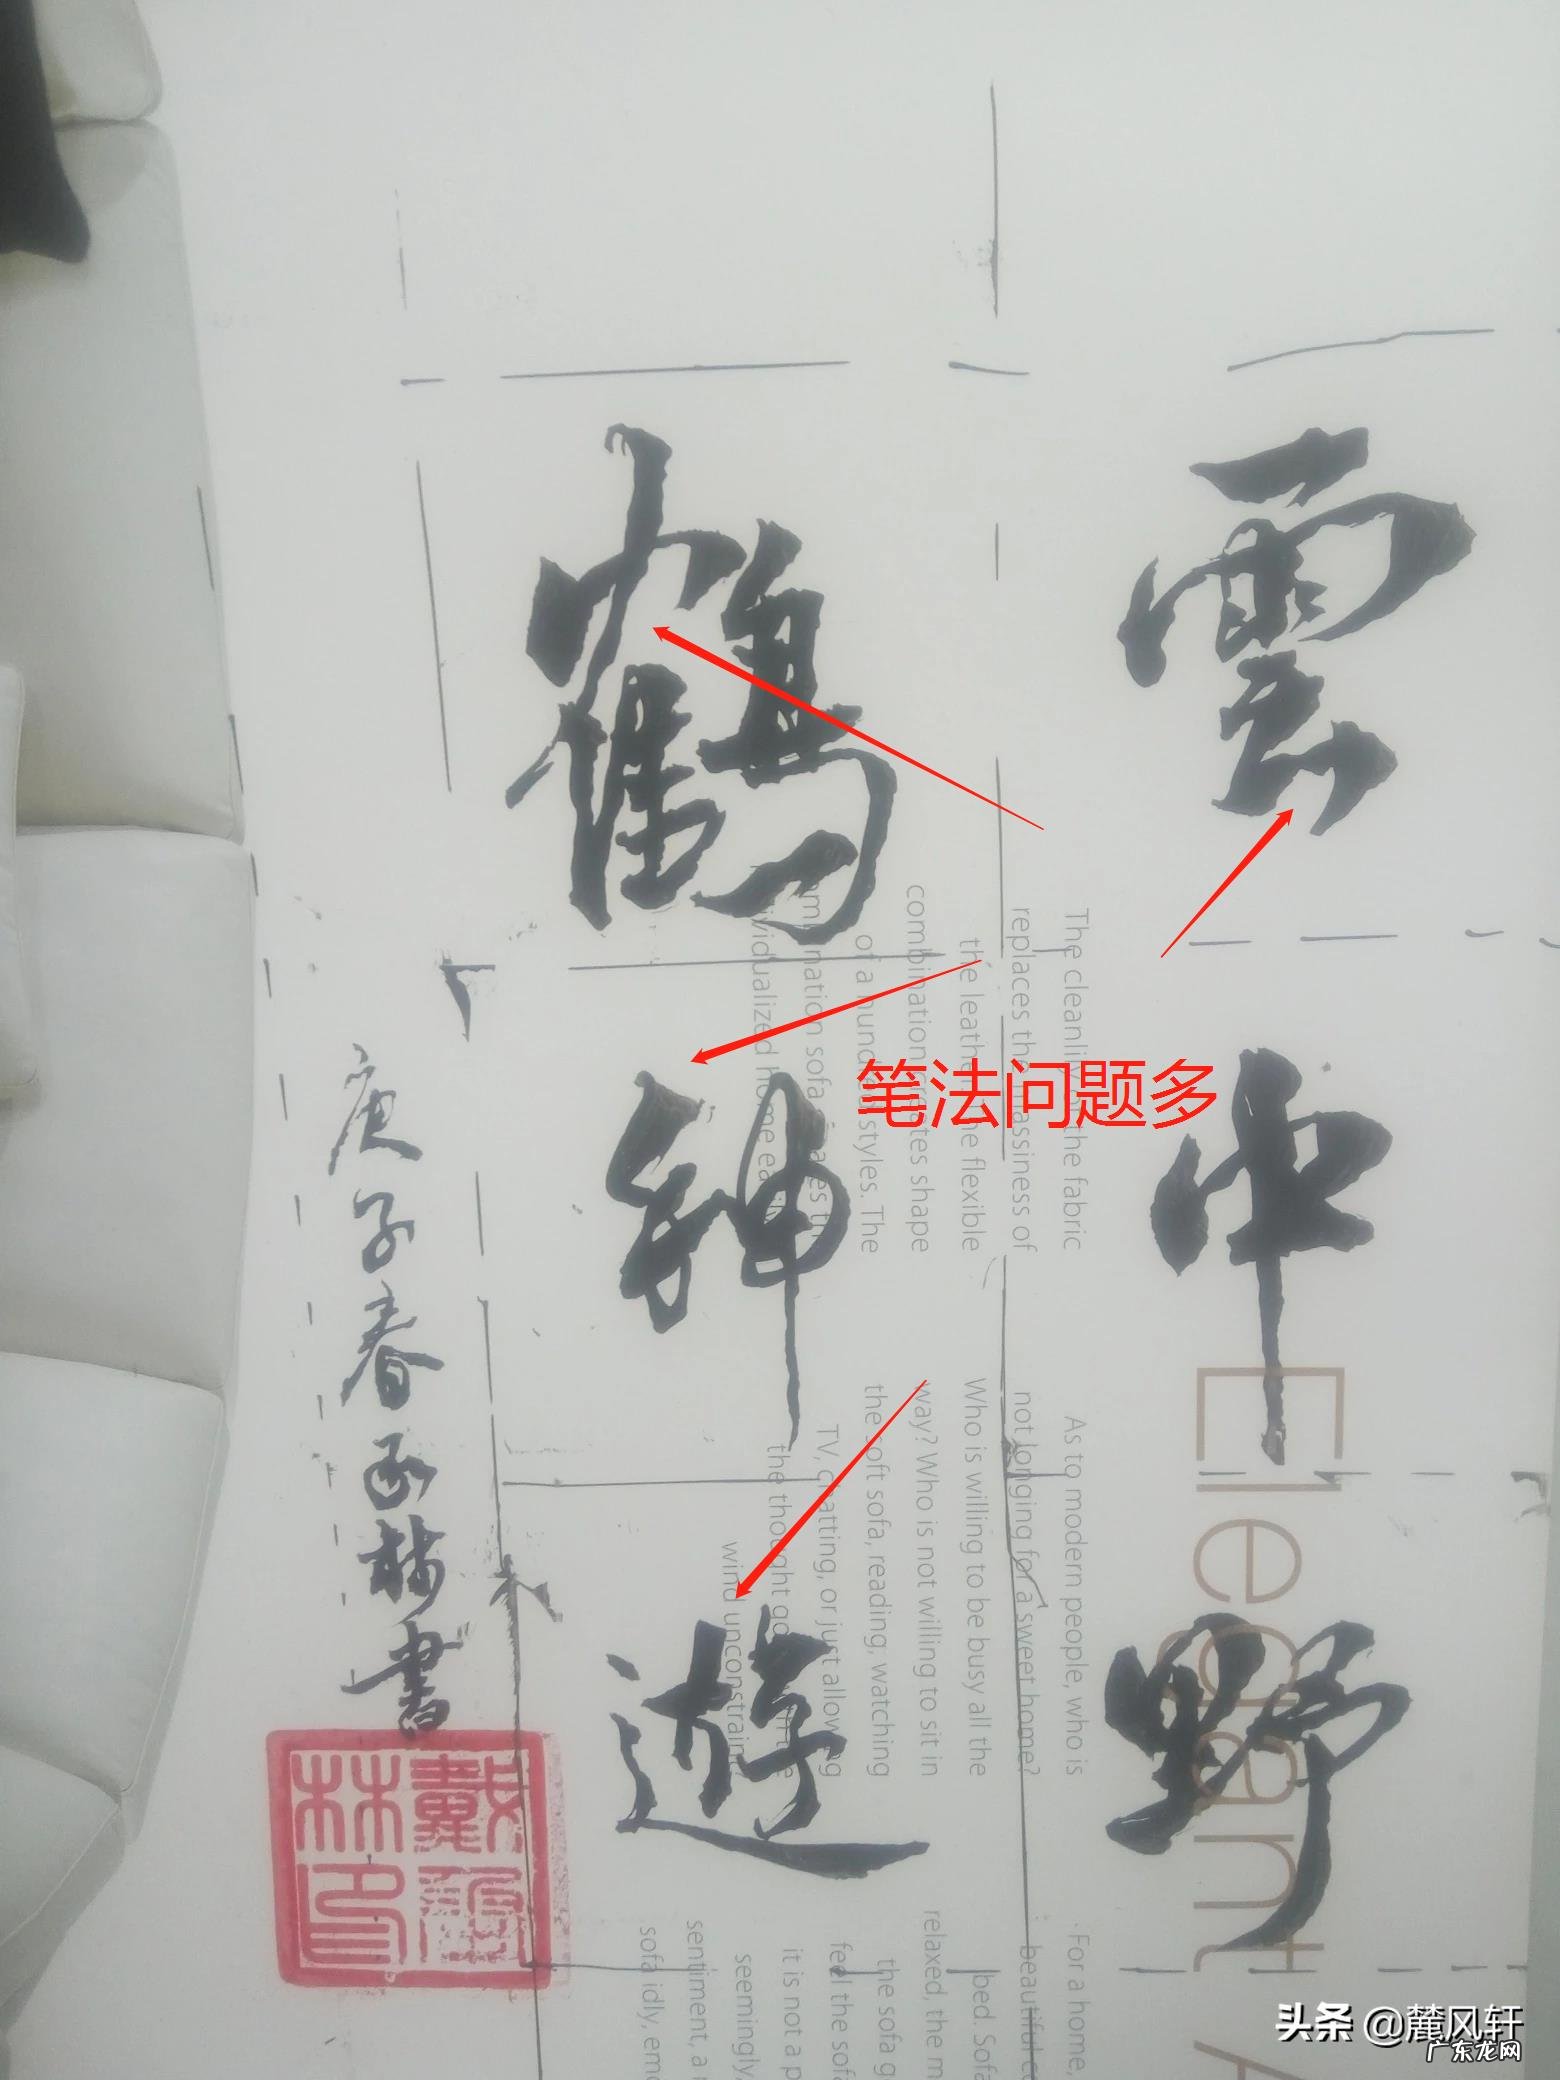 雲中野
鶴神遊
庚子春 林書
戴 林印
笔法问题多
Elegant
The cleanliness of the fabric
replaces the massiness of
the leather. The flexible
combination creates shape
of a hundred styles. The
combination sofa makes the
individualized home easily
As to modern people, who is
not longing for a sweet home?
Who is willing to be busy all the
way? Who is not willing to sit in
the soft sofa, reading, watching
TV, chatting, or just allowing
the thought go with the
wind unconstrained
For a home,
beautiful
bed. Sofa
relaxed, the
the sofa
feel the sofa
it is not a
seemingly,
sentiment, a
sofa idly,
头条 @麓风轩
广东龙网